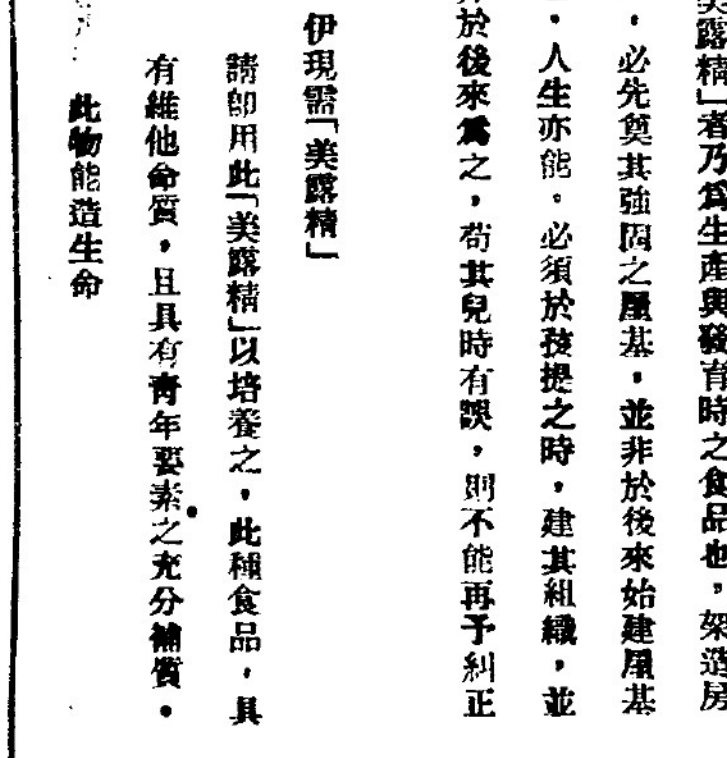 美露精」者乃爲生產與發育時之食品也，架造房
，必先奠其強固之屋基，並非於後來始建屋基
，人生亦能。必須於孩提之時，建其組織，並
非於後來爲之，苟其兒時有誤，則不能再予糾正
伊現需「美露精」
請卽用此「美露精」以培養之，此種食品，具
有維他命質，且具有靑年要素之充分補質。
此物能造生命